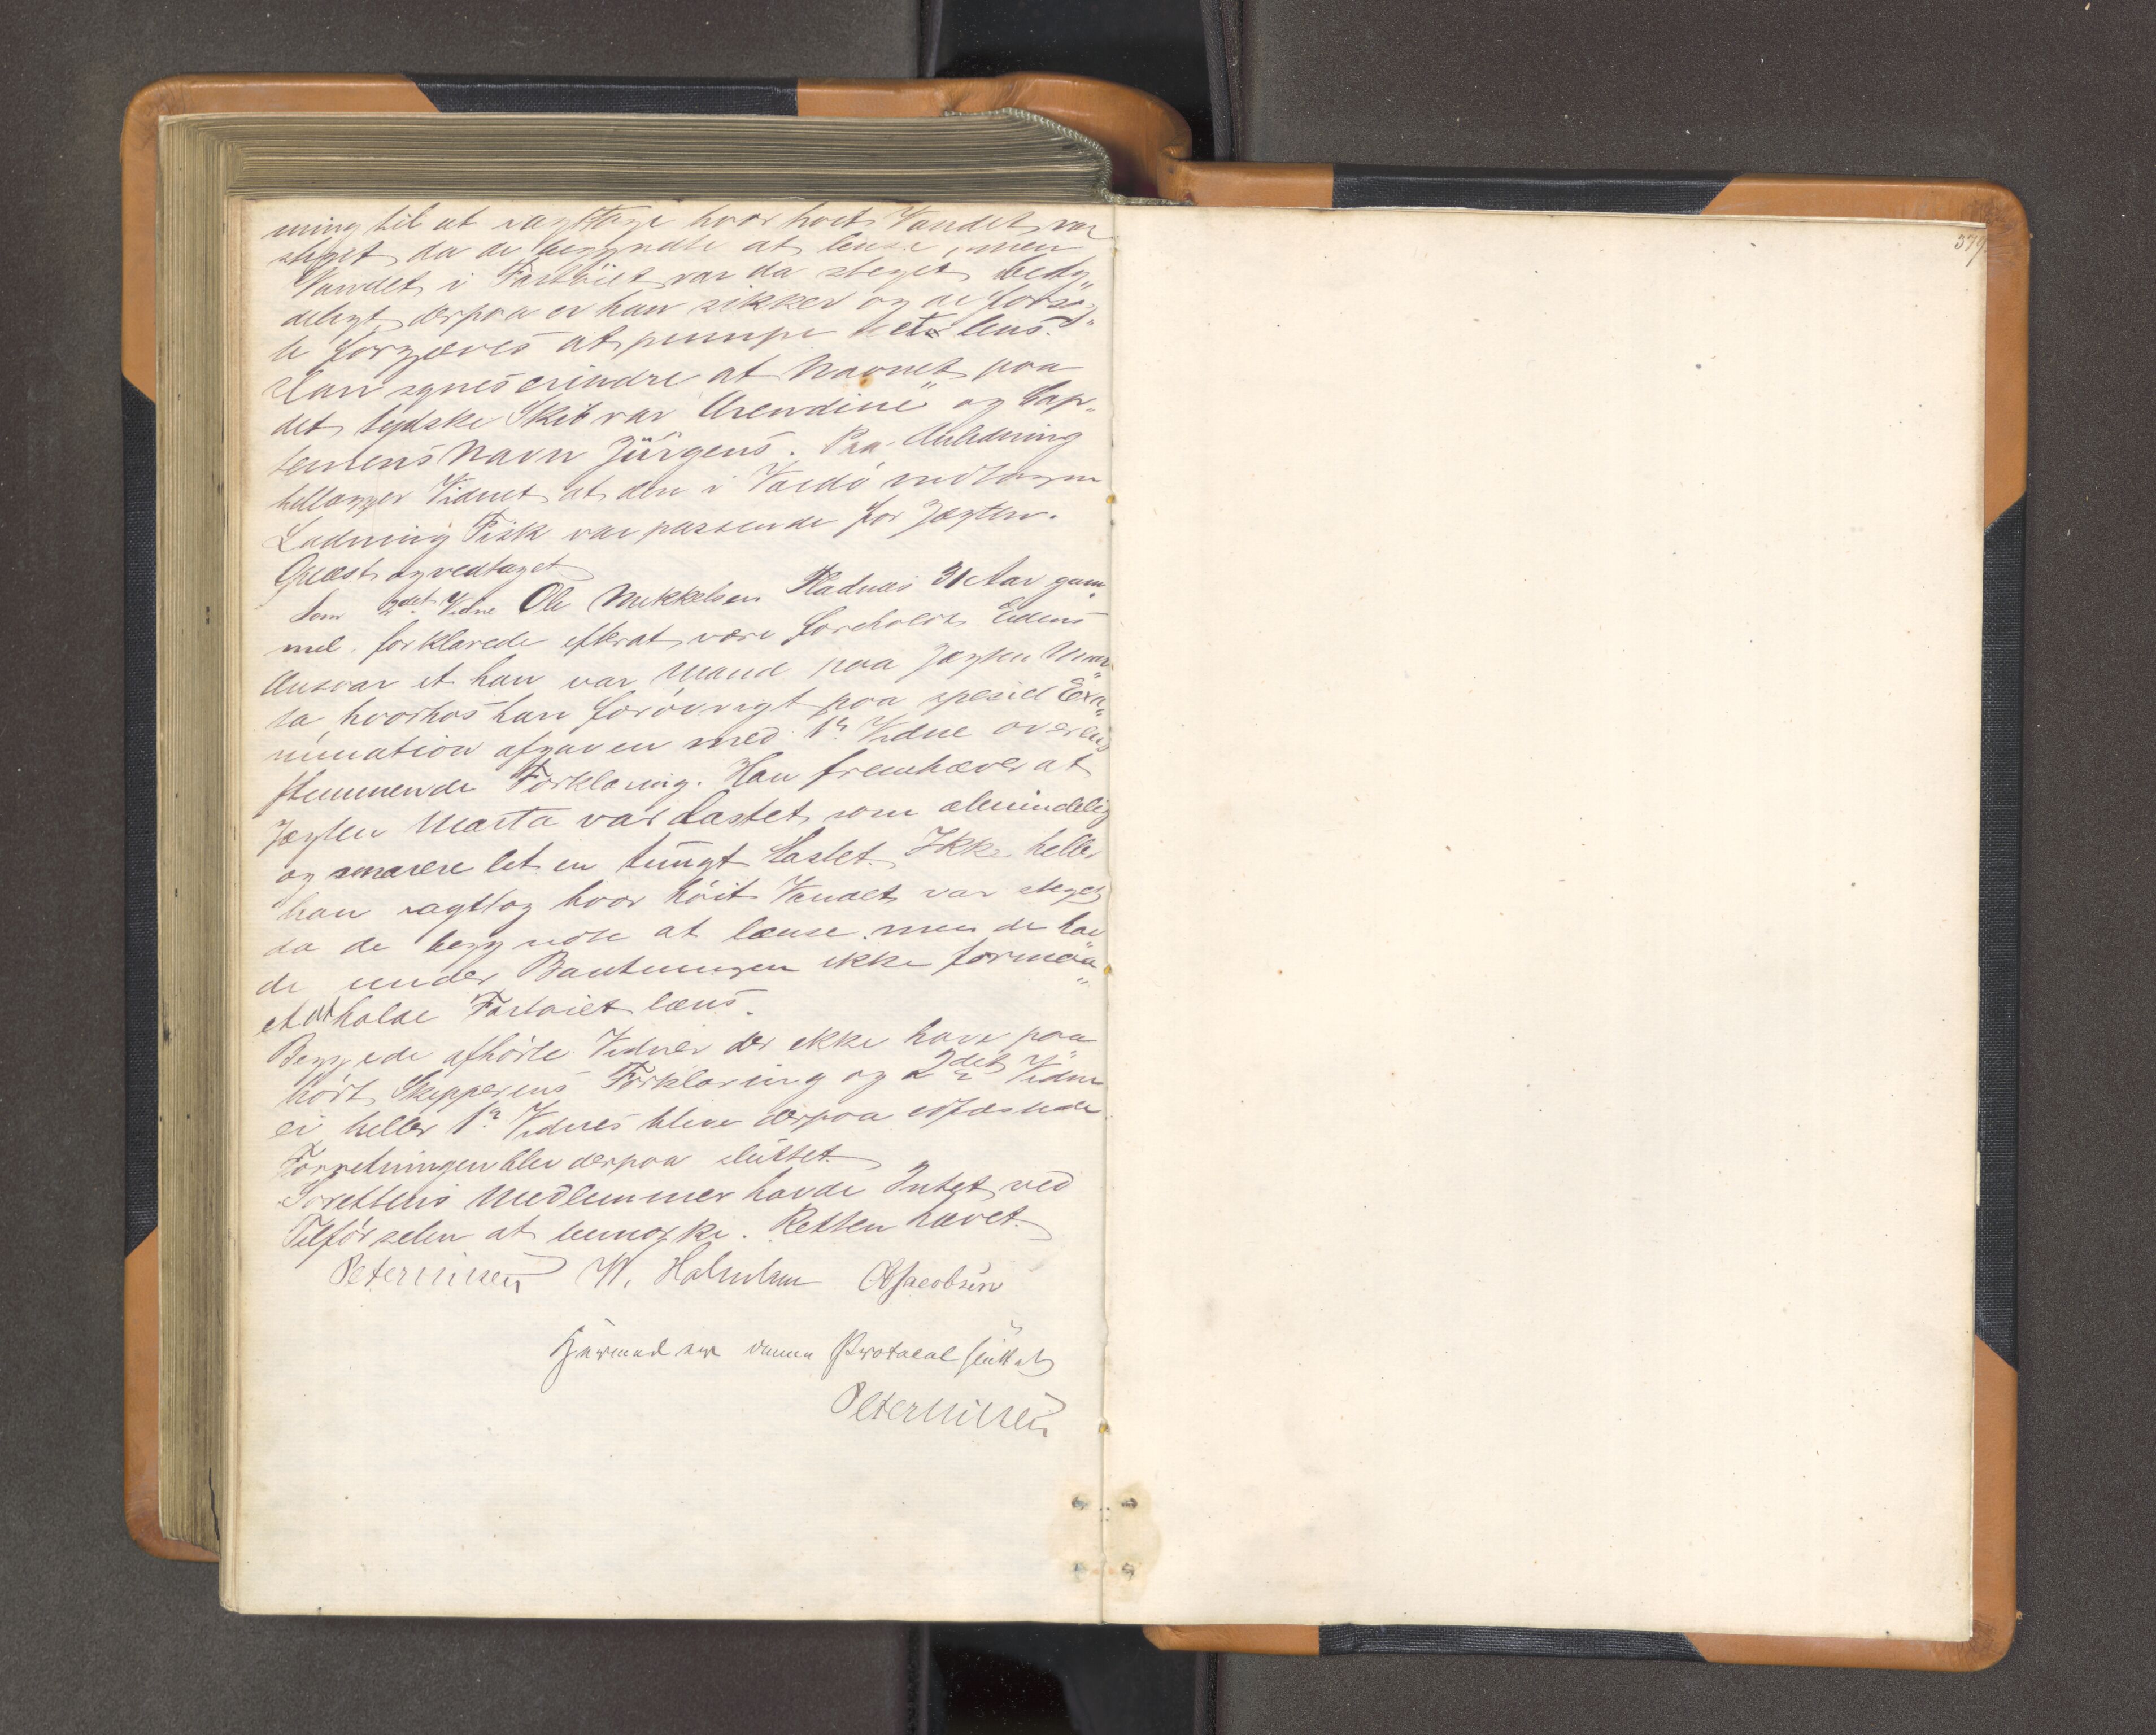 ning til at iagttage hvor høit Vandet var
steget da de begyndte at lense, men
Vandet i Fartøiet var da steget bety„
deligt, derpaa er han sikker og de forsøg„
te forgjæves at pumpe det lens.
Han synes erindre at Navnet paa
det tydske Skib var "Arendine" og Cap„
teinens Navn Jürgens. Paa Anledning
tillægger Vidnet at den i Vardø indtagne
Ladning Fisk var passende for Jagten.
Oplæst og vedtaget
Som 2det Vidne Ole Mikkelsen 31 Aar gam„
mel, forklarede efterat være foreholdt Edens
Ansvar at han var Mand paa Jagten Mar„
ta, hvorhos han forøvrigt paa speciel Exa„
mination afgav en med 1ste Vidne overens
stemmende Forklaring. Han fremhæver at
Jagten Marta var lastet som almindelig
og snarere let en tungt lastet. Ikke heller
han iagttog hvor høit Vandet var steget
da de begyndte at lænse, men de hav
de under Bautningen ikke formaa„
et at holde Fartøiet læns.
Begge de afhørte Vidner der ikke have paa„
hørt Skipperens Forklaring og 2det Vidne
ei heller 1ste Vidnes bleve derpaa edfæstede
Forretningen blev derpaa sluttet.
Sørettens Medlemmer havde Intet ved
Tilførselen at bemærke. Retten hævet.
Peter Nissen W. Holmboe Jacobsen
Hermed er denne Protocol sluttet
Peter Nissen
379